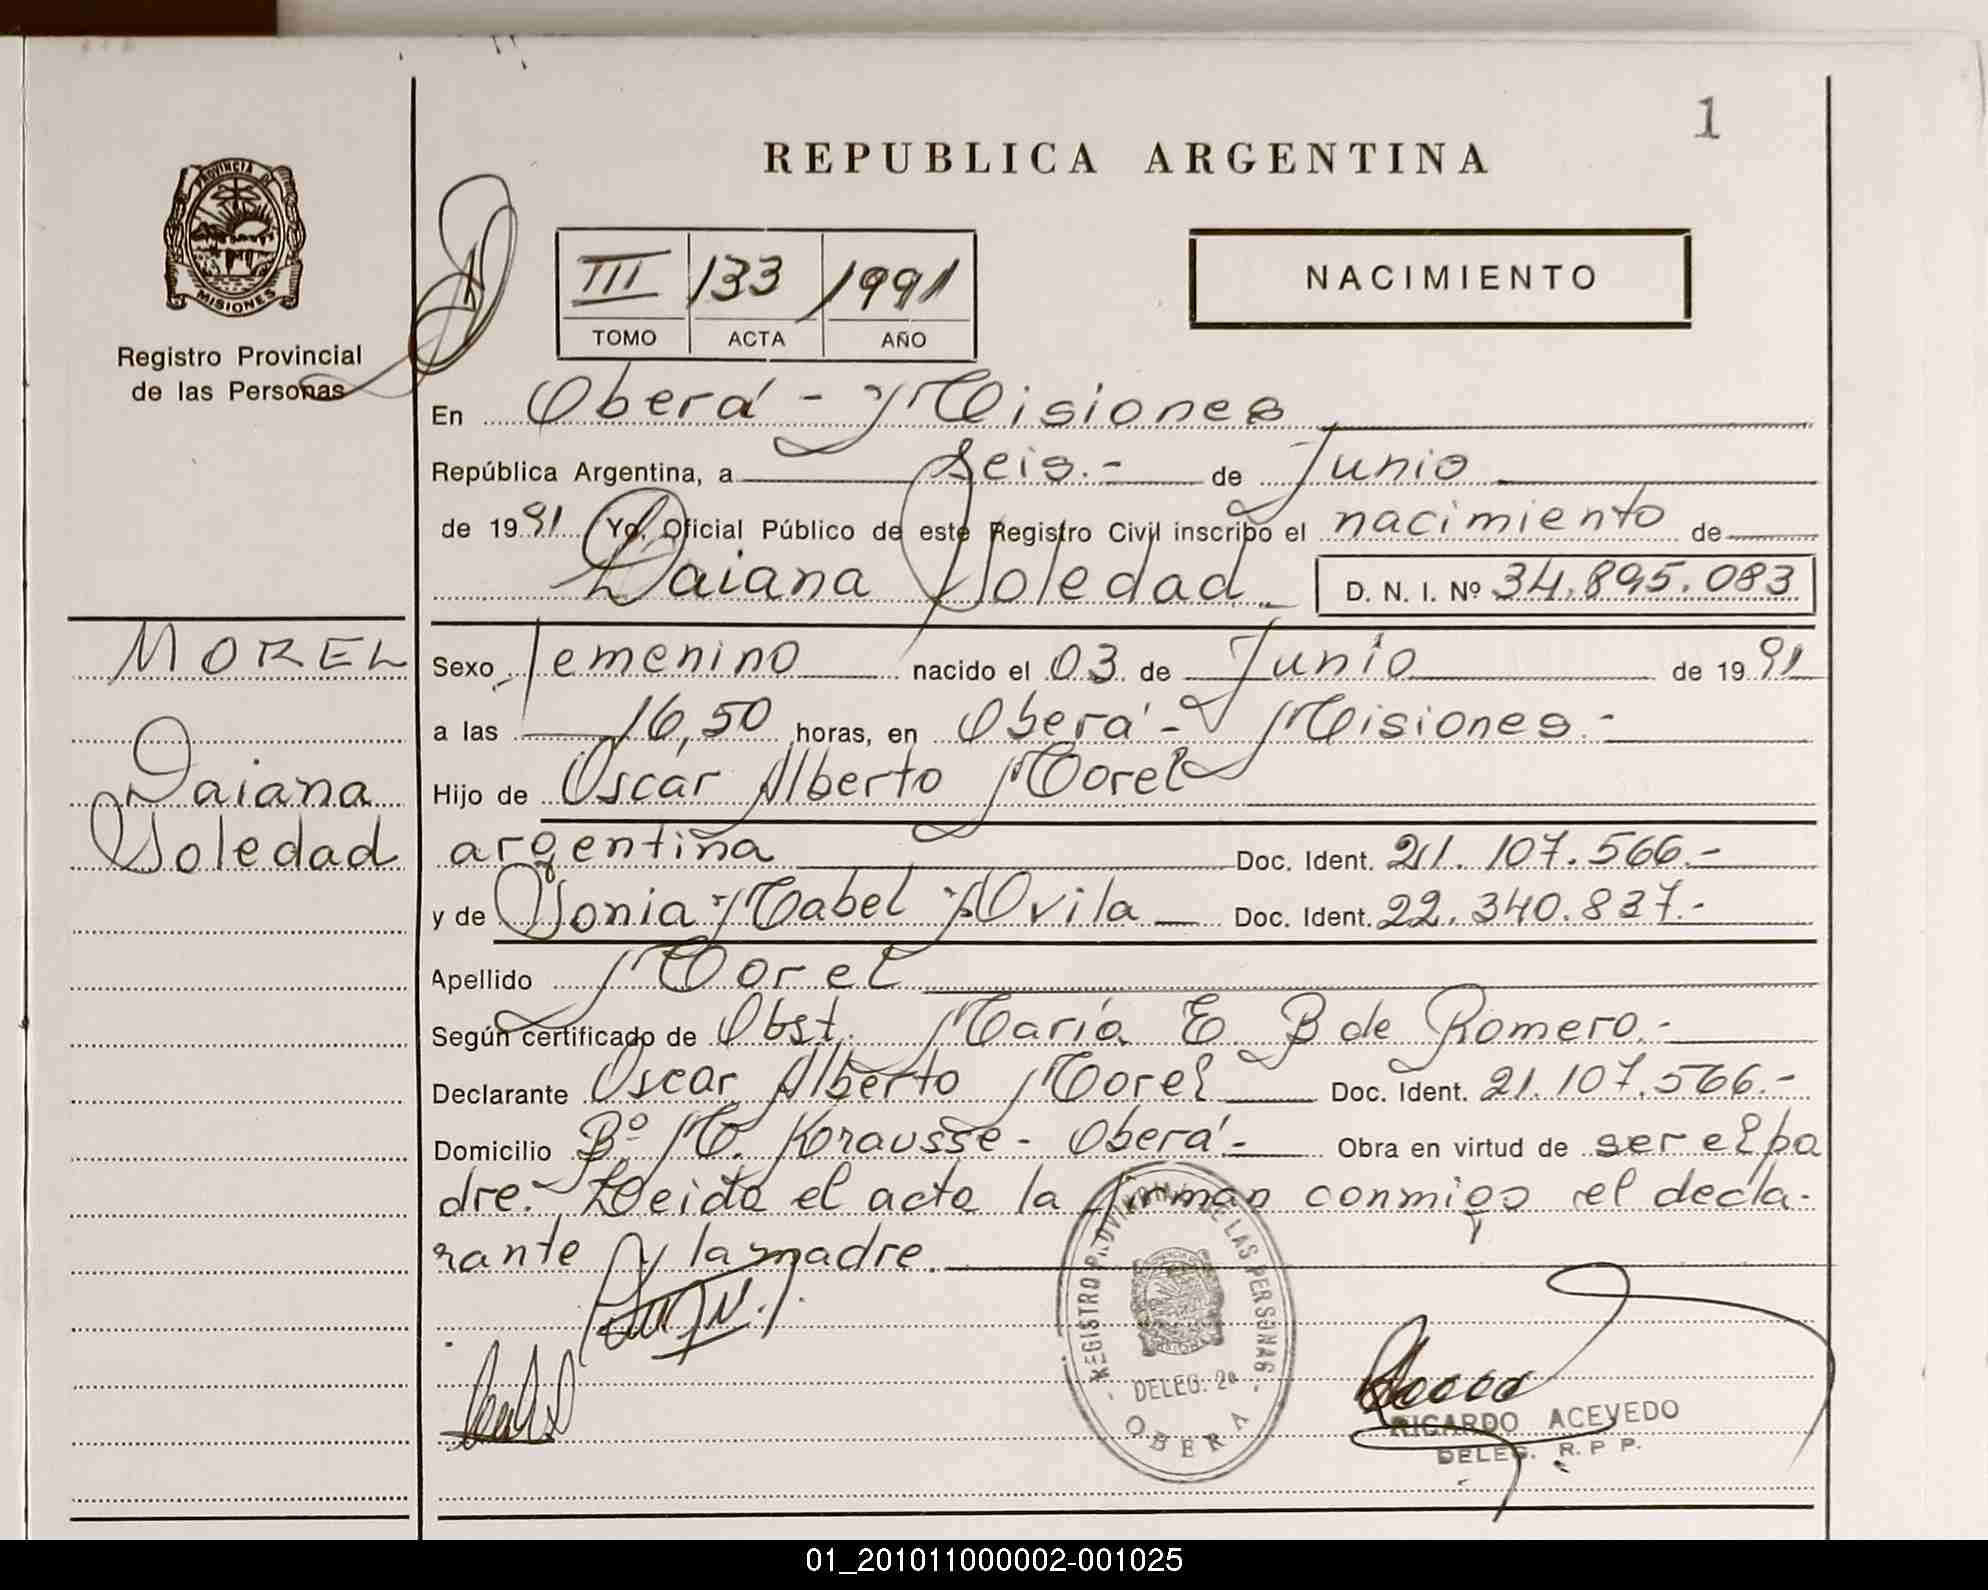 1
REPUBLICA ARGENTINA
PROVINCIA DE
MISIONES
Registro Provincial
de las Personas
III 133 1991
TOMO ACTA AÑO
NACIMIENTO
En Oberá - Misiones
República Argentina, a Seis.- de Junio
de 1991 Yo, Oficial Público de este Registro Civil inscribo el nacimiento de
Daiana Soledad D. N. I. Nº 34.895.083
MOREL
Daiana
Soledad
Sexo femenino nacido el 03 de Junio de 1991
a las 16,50 horas, en Oberá - Misiones.-
Hijo de Oscar Alberto Morel
argentina Doc. Ident. 21.107.566.-
y de Sonia Mabel Avila Doc. Ident. 22.340.837.-
Apellido Morel
Según certificado de Obst. María E B de Romero.-
Declarante Oscar Alberto Morel Doc. Ident. 21.107.566.-
Domicilio Bº M. Krausse - Oberá.- Obra en virtud de ser el pa
dre. Leida el acta la firman conmigo el decla-
rante y la madre.
REGISTRO PROVINCIAL DE LAS PERSONAS
DELEG. 2a
OBERA
RICARDO ACEVEDO
DELEG. R. P P.
01_201011000002-001025